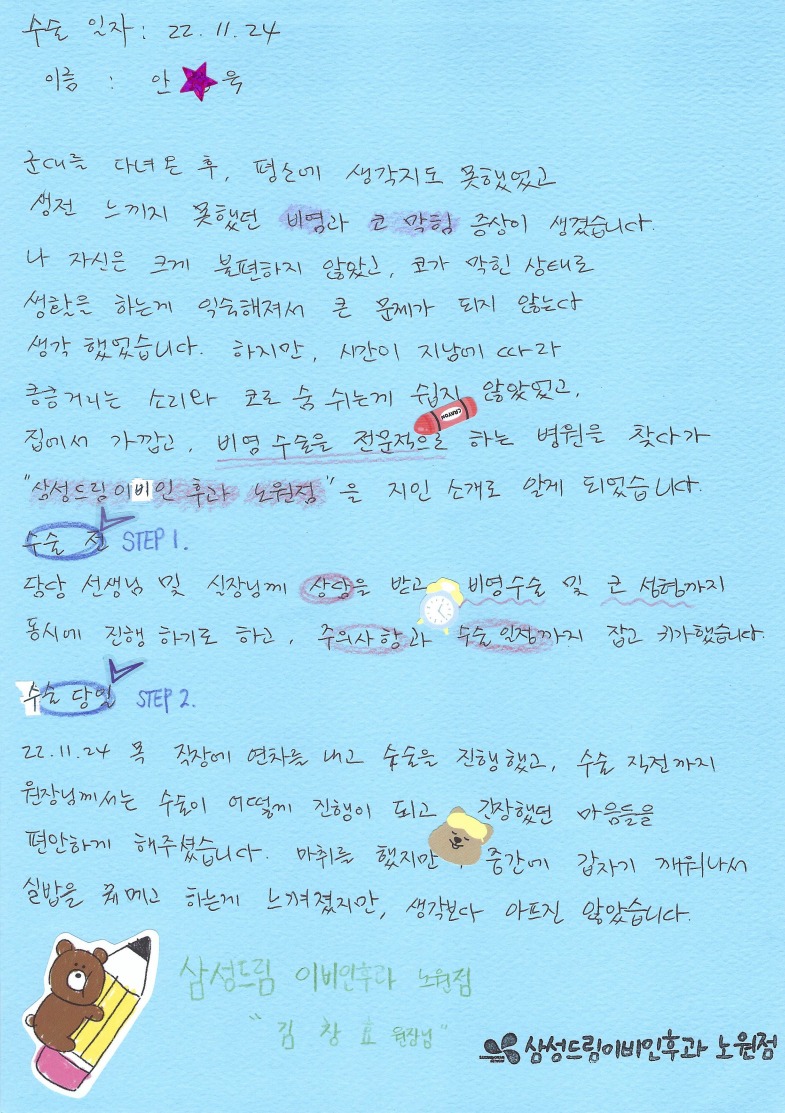 수술 일자 : 22. 11. 24
이름 : 안 욱
군대를 다녀온 후, 평소에 생각지도 못했었고
생전 느끼지 못했던 비염과 코 막힘 증상이 생겼습니다.
나 자신은 크게 불편하지 않았고, 코가 막힌 상태로
생활을 하는게 익숙해져서 큰 문제가 되지 않는다
생각 했었습니다. 하지만, 시간이 지남에 따라
킁킁거리는 소리와 코로 숨 쉬는게 쉽지 않았었고,
집에서 가깝고, 비염 수술을 전문적으로 하는 병원을 찾다가
"삼성드림이비인후과 노원점"을 지인 소개로 알게 되었습니다.
수술 전 STEP 1.
담당 선생님 및 실장님께 상담을 받고 비염수술 및 코 성형까지
동시에 진행 하기로 하고, 주의사항과 수술 일정까지 잡고 귀가했습니다.
수술 당일 STEP 2.
22.11.24 목 직장에 연차를 내고 수술을 진행했고, 수술 직전까지
원장님께서는 수술이 어떻게 진행이 되고 긴장했던 마음들을
편안하게 해주셨습니다. 마취를 했지만, 중간에 갑자기 깨워나서
실밥을 꿰메고 하는게 느껴졌지만, 생각보다 아프진 않았습니다.
CRAYON
삼성드림 이비인후과 노원점
"김 창 효 원장님"
삼성드림이비인후과 노원점